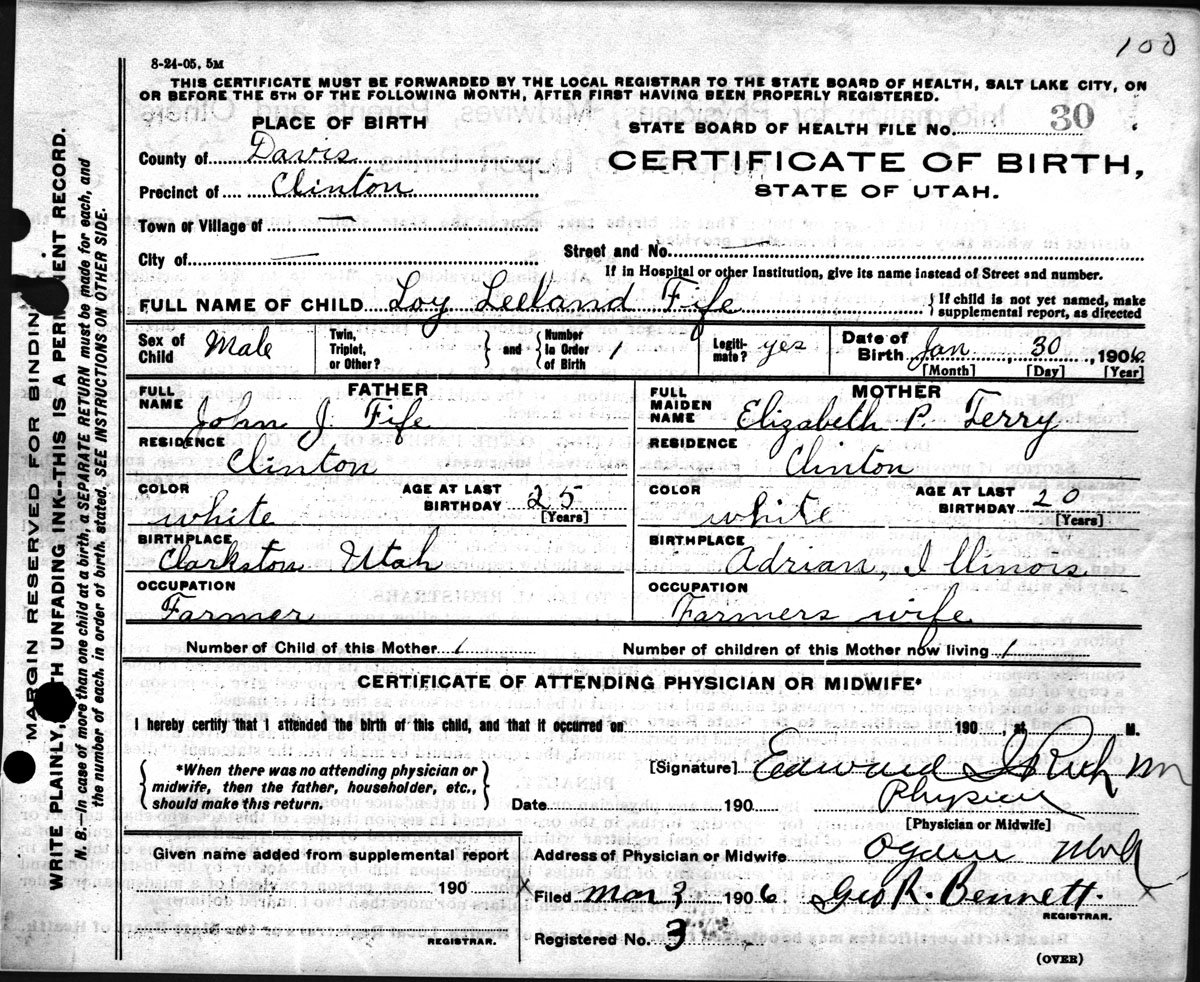 100
8-24-05. 5M
THIS CERTIFICATE MUST BE FORWARDED BY THE LOCAL REGISTRAR TO THE STATE BOARD OF HEALTH, SALT LAKE CITY, ON
OR BEFORE THE 5TH OF THE FOLLOWING MONTH, AFTER FIRST HAVING BEEN PROPERLY REGISTERED.
PLACE OF BIRTH
STATE BOARD OF HEALTH FILE NO. 30
County of Davis
CERTIFICATE OF BIRTH,
Precinct of Clinton
STATE OF UTAH.
Town or Village of —
City of —
Street and No. —
If in Hospital or other Institution, give its name instead of Street and number.
FULL NAME OF CHILD Loy Leeland Fife
{If child is not yet named, make
supplemental report, as directed
Sex of Child Male
Twin, Triplet, or Other? } and { Number in Order of Birth 1
Legiti-mate? yes
Date of Birth Jan 30, 1906
[Month] [Day] [Year]
FATHER
MOTHER
FULL NAME John J. Fife
FULL MAIDEN NAME Elizabeth P. Terry
RESIDENCE Clinton
RESIDENCE Clinton
COLOR white
AGE AT LAST BIRTHDAY 25 [Years]
COLOR white
AGE AT LAST BIRTHDAY 20 [Years]
BIRTHPLACE Clarkston Utah
BIRTHPLACE Adrian, Illinois
OCCUPATION Farmer
OCCUPATION Farmers wife
Number of Child of this Mother 1
Number of children of this Mother now living 1
CERTIFICATE OF ATTENDING PHYSICIAN OR MIDWIFE*
I hereby certify that I attended the birth of this child, and that it occurred on 190 , at M.
*When there was no attending physician or
midwife, then the father, householder, etc.,
should make this return.
[Signature] Edward I Rich
Date 190
[Physician or Midwife]
Given name added from supplemental report
190
REGISTRAR.
Address of Physician or Midwife Ogden Utah
X Filed Mar 3 1906 Geo R. Bennett.
REGISTRAR.
Registered No. 3
(OVER)
MARGIN RESERVED FOR BINDING
WRITE PLAINLY, WITH UNFADING INK--THIS IS A PERMANENT RECORD.
N. B.—In case of more than one child at a birth, a SEPARATE RETURN must be made for each, and
the number of each, in order of birth, stated. SEE INSTRUCTIONS ON OTHER SIDE.